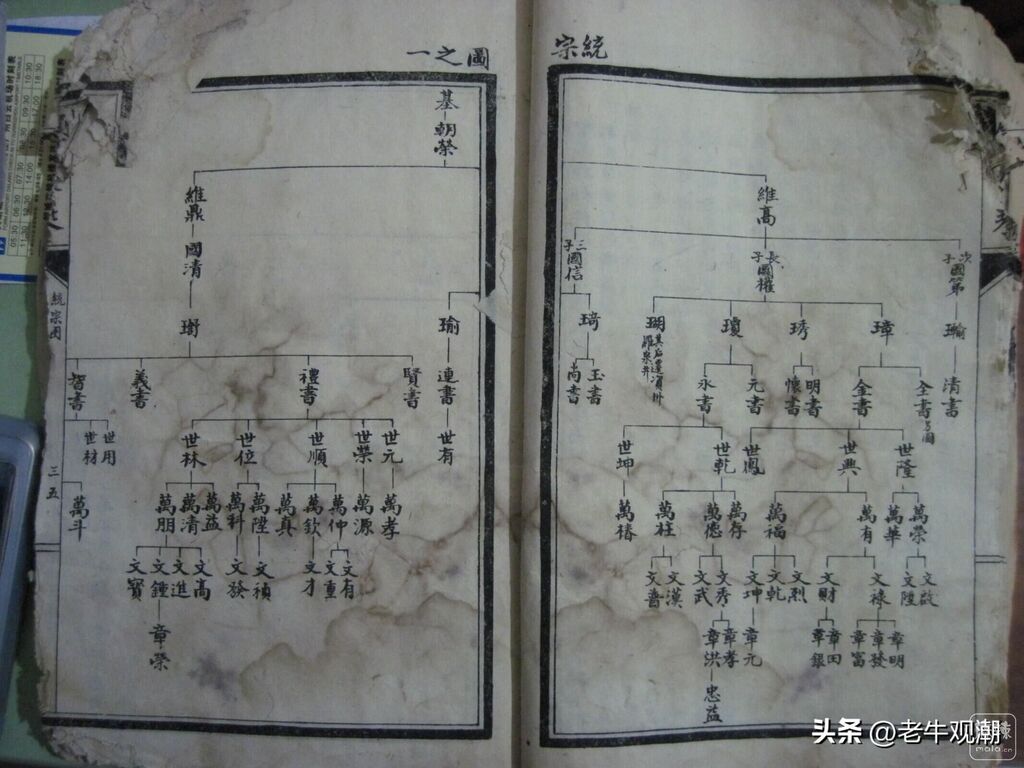 統宗
圖之一
維高
次子國第
長子國權
三子國信
瑜
璋
琇
瓊
瑚
琦
清書
全書
全書
明書
懷書
元書
永書
玉書
尚書
世隆
世興
世鳳
世乾
世坤
萬榮
萬華
萬有
萬福
萬存
萬德
萬柱
萬椿
文啟
文陞
文祿
文財
文烈
文乾
文坤
文秀
文武
文漢
章明
章發
章富
章田
章銀
章元
章孝
章洪
忠益
基
朝榮
維鼎
國清
瑜
連書
世有
賢書
禮書
義書
智書
世元
世榮
世順
世位
世林
世用
世材
萬孝
萬源
萬仲
萬欽
萬真
萬陞
萬科
萬益
萬清
萬朋
萬斗
文有
文重
文才
文禎
文發
文高
文進
文鍾
文寶
章榮
統宗圖
三五
头条 @老牛观潮
mala.cn